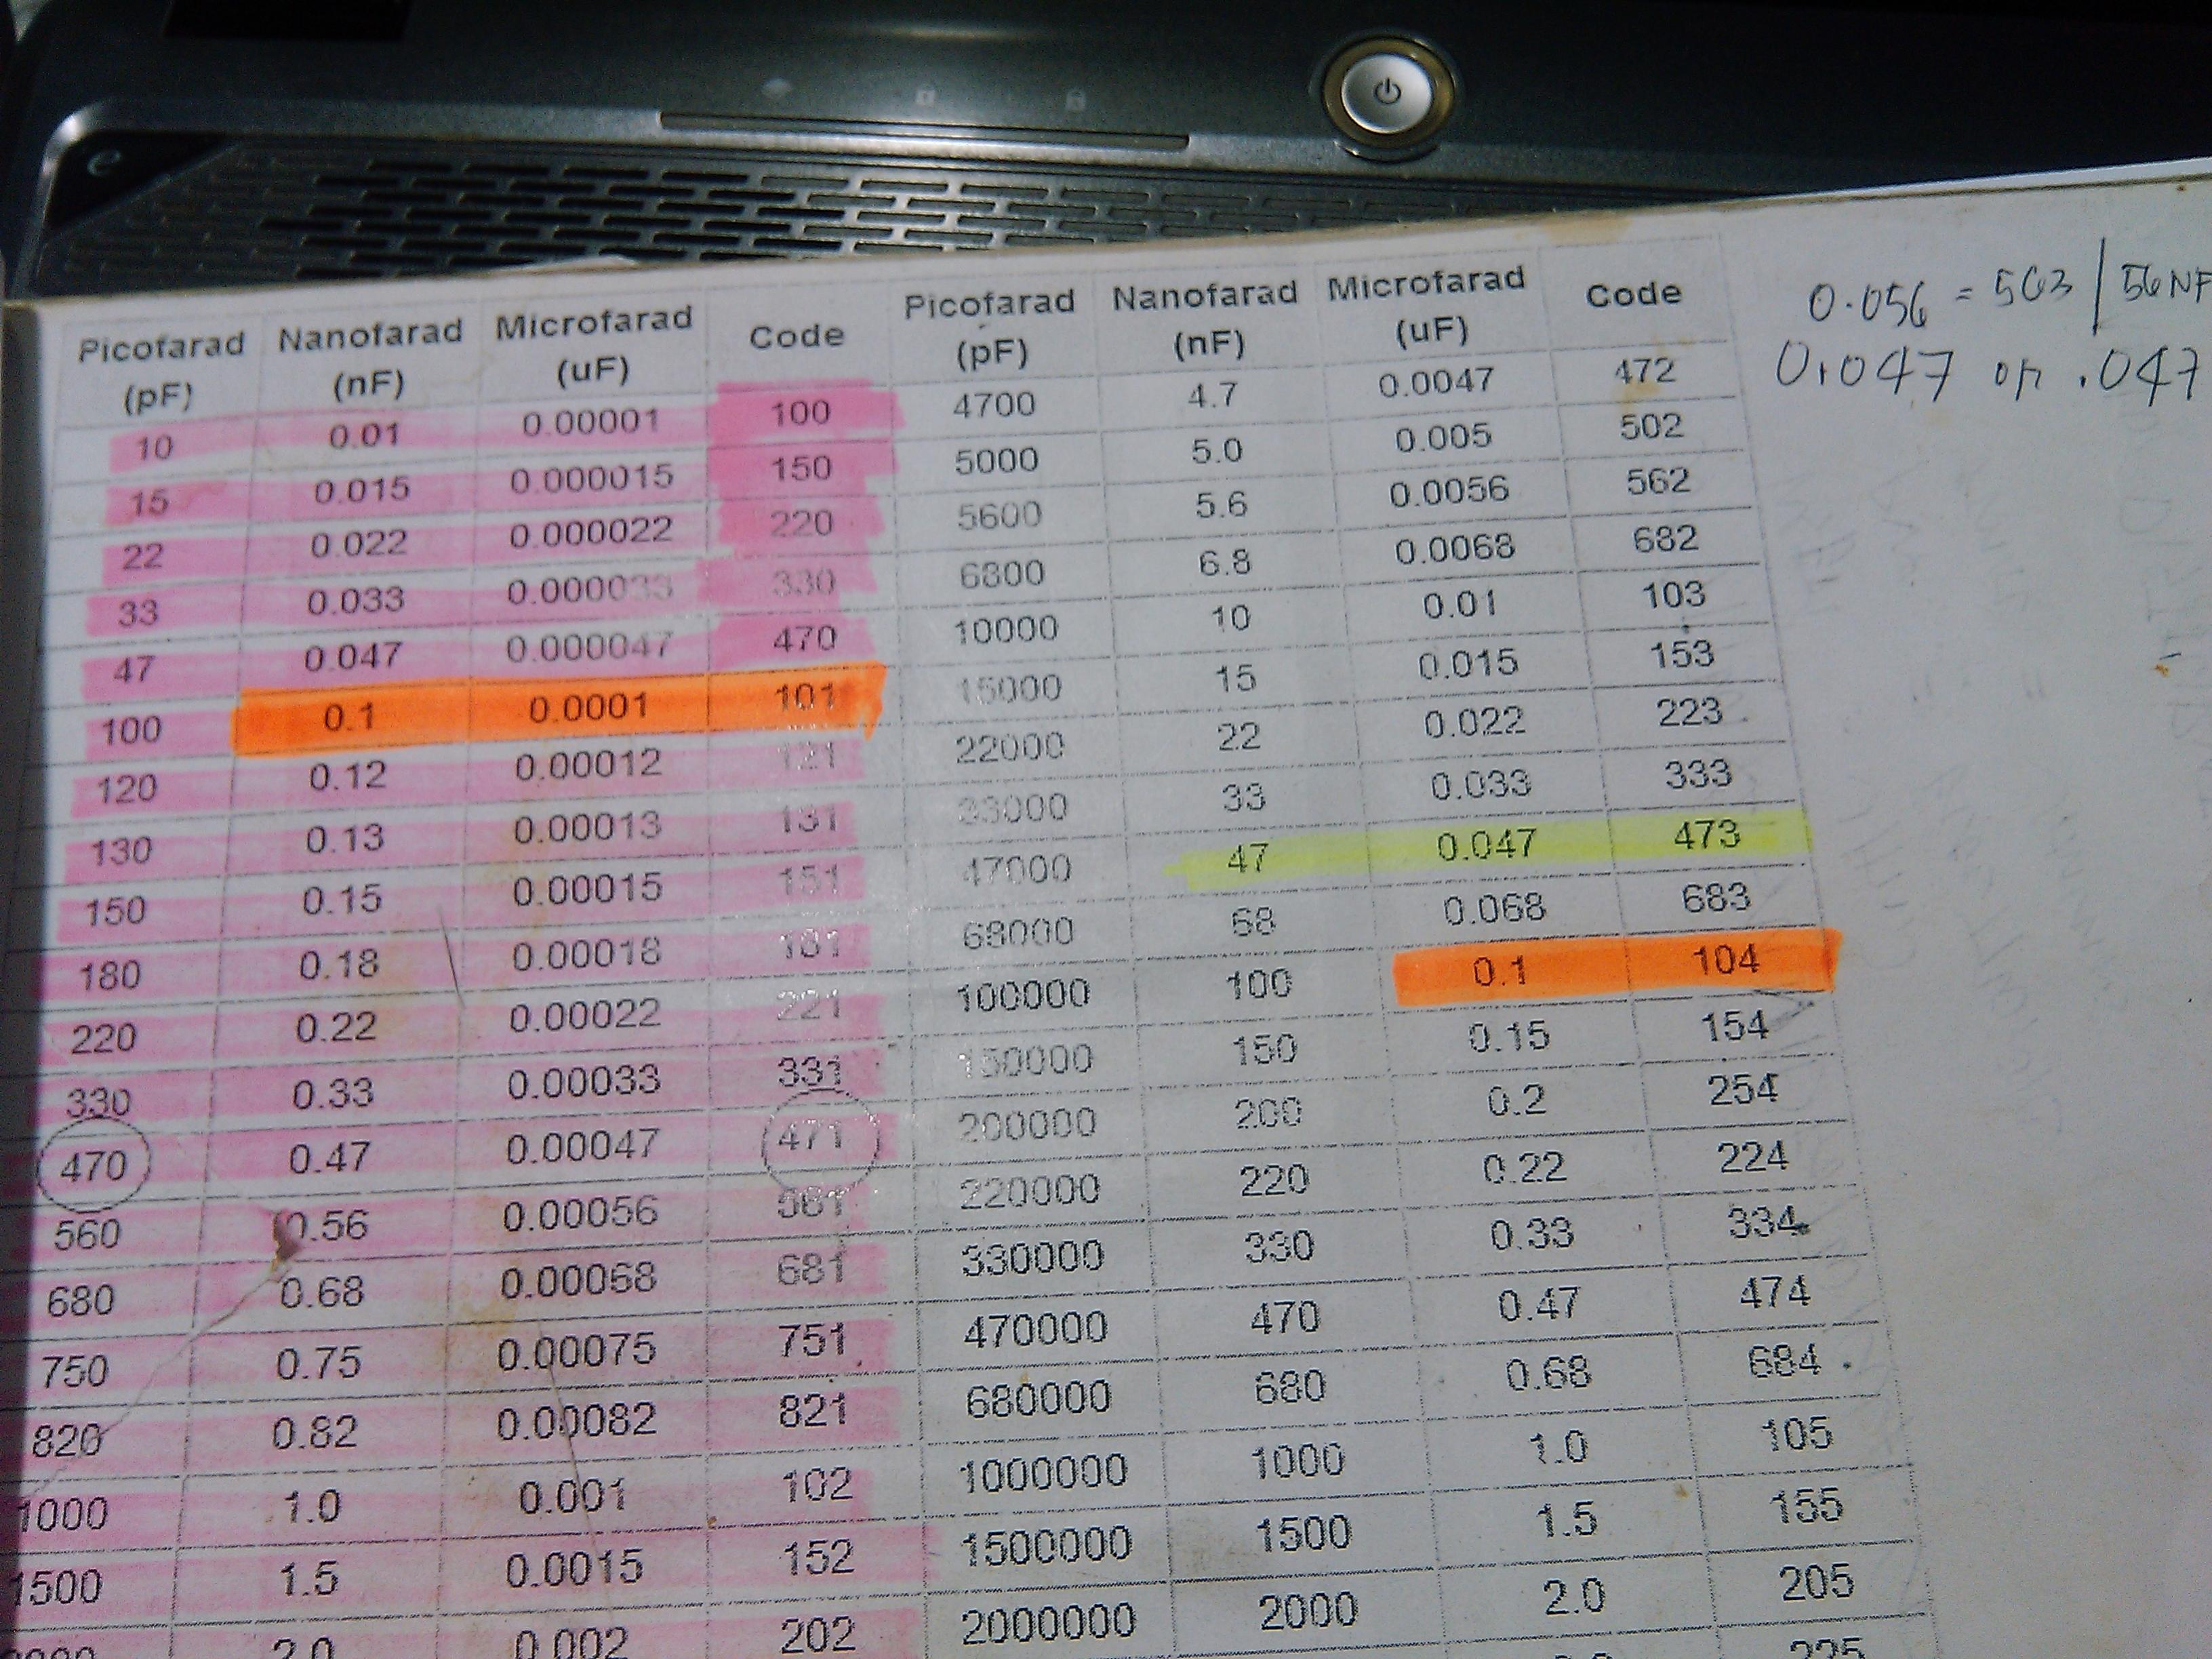 Picofarad (pF) Nanofarad (nF) Microfarad (uF) Code Picofarad (pF) Nanofarad (nF) Microfarad (uF) Code
0.056 = 563 | 56NF
0.047 or .047
10 0.01 0.00001 100 4700 4.7 0.0047 472
15 0.015 0.000015 150 5000 5.0 0.005 502
22 0.022 0.000022 220 5600 5.6 0.0056 562
33 0.033 0.000033 330 6800 6.8 0.0068 682
47 0.047 0.000047 470 10000 10 0.01 103
100 0.1 0.0001 101 15000 15 0.015 153
120 0.12 0.00012 121 22000 22 0.022 223
130 0.13 0.00013 131 33000 33 0.033 333
150 0.15 0.00015 151 47000 47 0.047 473
180 0.18 0.00018 181 68000 68 0.068 683
220 0.22 0.00022 221 100000 100 0.1 104
330 0.33 0.00033 331 150000 150 0.15 154
470 0.47 0.00047 471 200000 200 0.2 254
560 0.56 0.00056 561 220000 220 0.22 224
680 0.68 0.00068 681 330000 330 0.33 334
750 0.75 0.00075 751 470000 470 0.47 474
820 0.82 0.00082 821 680000 680 0.68 684
1000 1.0 0.001 102 1000000 1000 1.0 105
1500 1.5 0.0015 152 1500000 1500 1.5 155
2.0 0.002 202 2000000 2000 2.0 205
225